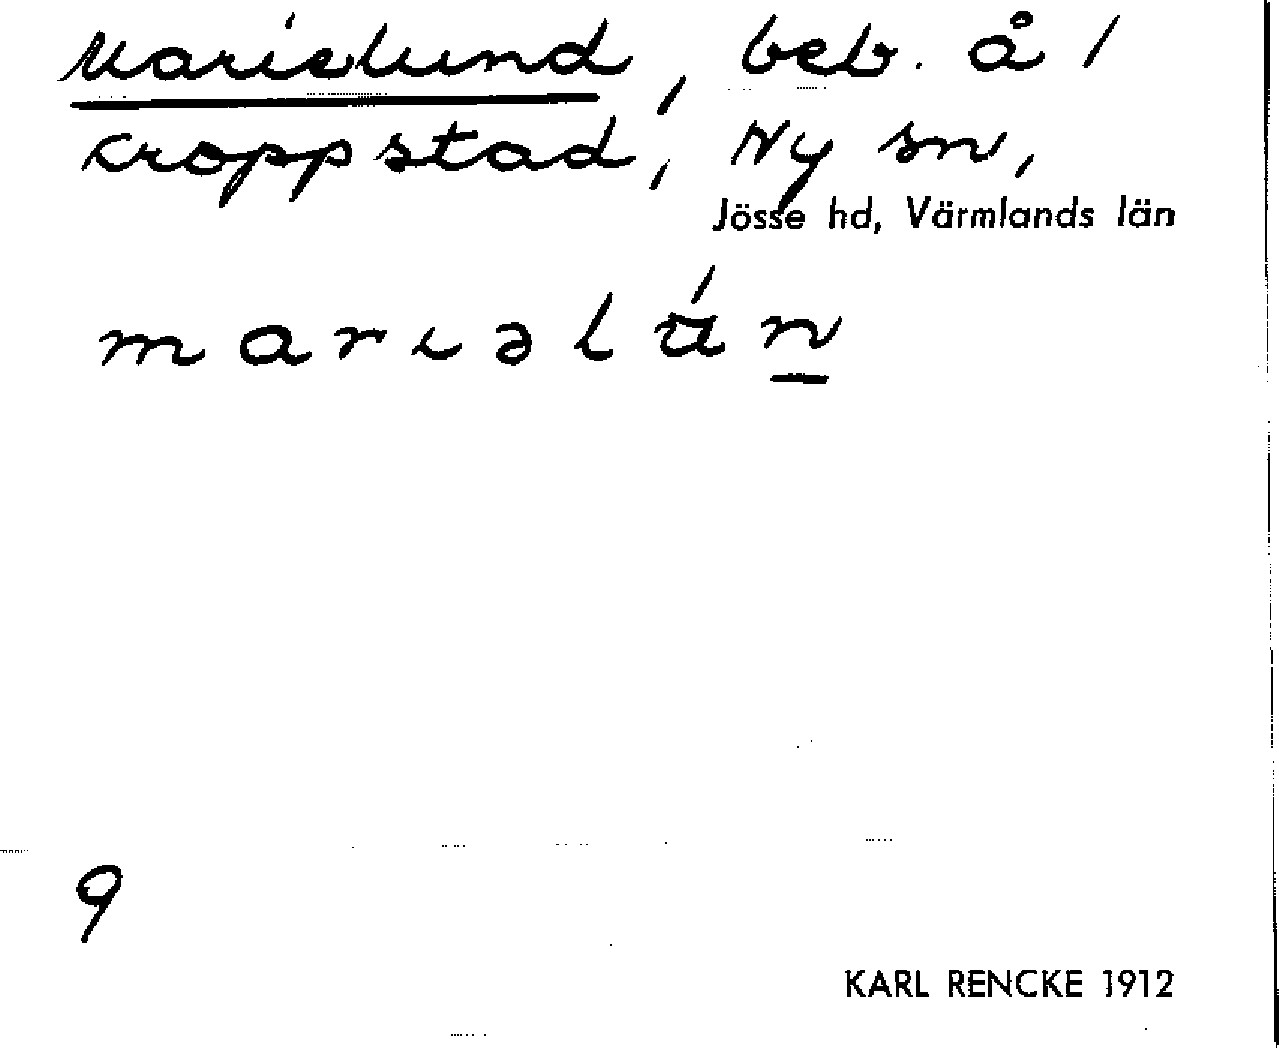 Marielund, beb. å /
Kroppstad, Ny sn,
Jösse hd, Värmlands län
marıəlú̈n̲
9
KARL RENCKE 1912